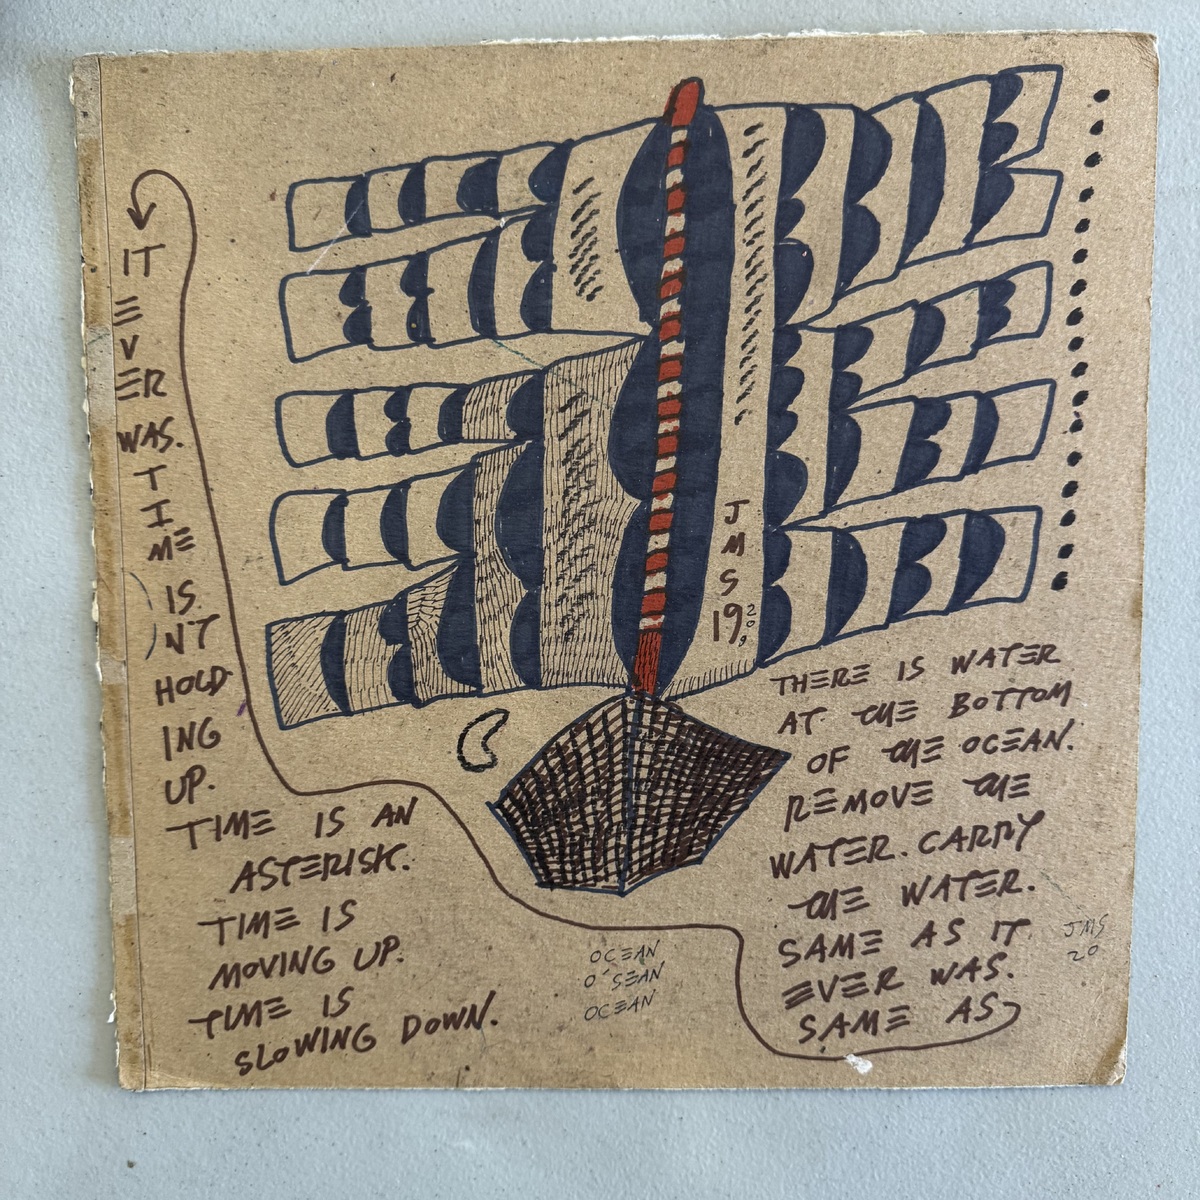 J
M
S
19 2009
THERE IS WATER
AT THE BOTTOM
OF THE OCEAN.
REMOVE THE
WATER. CARRY
THE WATER.
SAME AS IT
EVER WAS.
SAME AS
IT
E
V
ER
WAS.
T
I
ME
IS
N'T
HOLD
ING
UP.
TIME IS AN
ASTERISK.
TIME IS
MOVING UP.
TIME IS
SLOWING DOWN.
OCEAN
O'SEAN
OCEAN
JMS
20